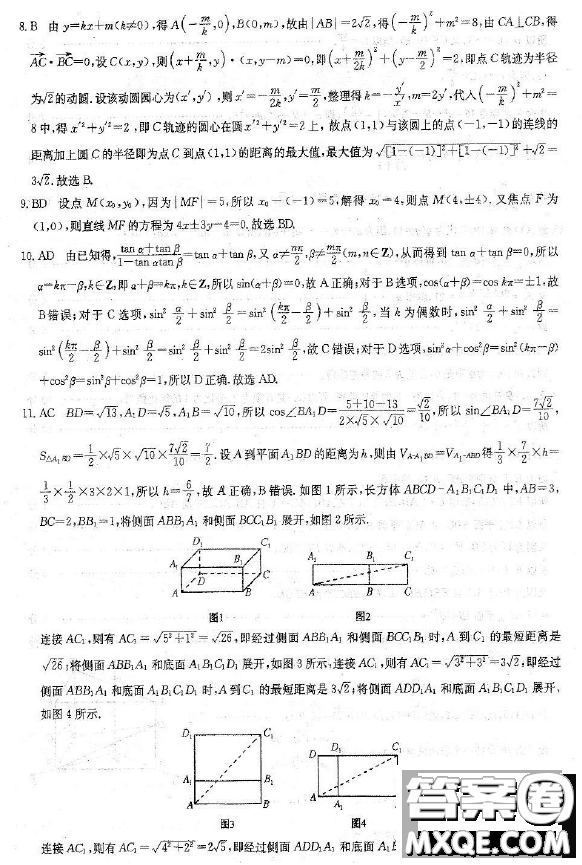 8. B 由 y=kx+m(k≠0),得 A(-m/k,0),B(0,m),故由|AB|=2√2,得(-m/k)²+m²=8,由 CA⊥CB,得
AC·BC=0,设 C(x,y),则(x+m/k,y)·(x,y-m)=0,即(x+m/2k)²+(y-m/2)²=2,即点 C 轨迹为半径
为√2的动圆.设该动圆圆心为(x′,y′),则 x′=-m/2k,y′=m/2,整理得 k=-y′/x′,m=2y′,代入(-m/k)²+m²=
8 中,得 x′²+y′²=2,即 C 轨迹的圆心在圆 x′²+y′²=2 上,故点(1,1)与该圆上的点(-1,-1)的连线的
距离加上圆 C 的半径即为点 C 到点(1,1)的距离的最大值,最大值为√[1-(-1)]²+[1-(-1)]²+√2=
3√2.故选 B.
9. BD 设点 M(x₀,y₀),因为|MF|=5,所以 x₀-(-1)=5,解得 x₀=4,则点 M(4,±4).又焦点 F 为
(1,0),则直线 MF 的方程为 4x±3y-4=0.故选 BD.
10. AD 由已知得,(tan α+tan β)/(1-tan αtan β)=tan α+tan β,又 α≠nπ/2,β≠mπ/2(m,n∈Z),从而得到 tan α+tan β=0,所以
α=kπ-β,k∈Z,即 α+β=kπ,k∈Z,所以 sin(α+β)=0,故 A 正确;对于 B 选项,cos(α+β)=cos kπ=±1,故
B 错误;对于 C 选项,sin² α/2+sin² β/2=sin²(kπ/2-β/2)+sin² β/2,当 k 为偶数时,sin² α/2+sin² β/2=
sin²(kπ/2-β/2)+sin² β/2=sin² β/2+sin² β/2=2sin² β/2,故 C 错误;对于 D 选项,sin²α+cos²β=sin²(kπ-β)
+cos²β=sin²β+cos²β=1,所以 D 正确.故选 AD.
11. AC BD=√13,A₁D=√5,A₁B=√10,所以 cos∠BA₁D=(5+10-13)/(2×√5×√10)=√2/10,所以 sin∠BA₁D=7√2/10,
S△A₁BD=1/2×√5×√10×7√2/10=7/2.设 A 到平面 A₁BD 的距离为 h,则由 V_A-A₁BD=V_A₁-ABD得1/3×7/2×h=
1/3×1/2×3×2×1,所以 h=6/7,故 A 正确,B 错误.如图 1 所示,长方体 ABCD-A₁B₁C₁D₁ 中,AB=3,
BC=2,BB₁=1,将侧面 ABB₁A₁ 和侧面 BCC₁B₁ 展开,如图 2 所示.
D₁ C₁ A₁ B₁ D C A B
A₁ B₁ C₁ A B C
图1 图2
连接 AC₁,则有 AC₁=√5²+1²=√26,即经过侧面 ABB₁A₁ 和侧面 BCC₁B₁ 时,A 到 C₁ 的最短距离是
√26;将侧面 ABB₁A₁ 和底面 A₁B₁C₁D₁ 展开,如图 3 所示,连接 AC₁,则有 AC₁=√3²+3²=3√2,即经过
侧面 ABB₁A₁ 和底面 A₁B₁C₁D₁ 时,A 到 C₁ 的最短距离是 3√2;将侧面 ADD₁A₁ 和底面 A₁B₁C₁D₁ 展开,
如图 4 所示.
D₁ C₁ A₁ B₁ A B
D D₁ C₁ A A₁
图3 图4
连接 AC₁,则有 AC₁=√4²+2²=2√5,即经过侧面 ADD₁A₁ 和底面 A₁B
答案圈
MXQE.COM